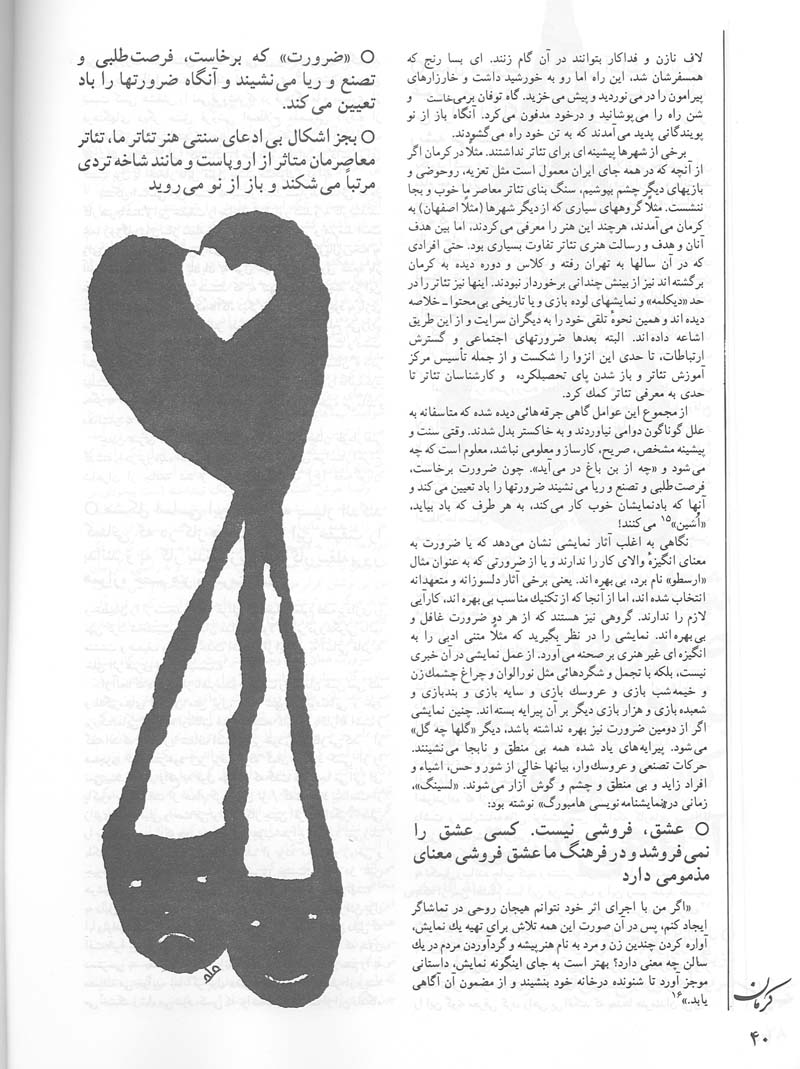 لاف نازن و فداکار بتوانند در آن گام زنند. ای بسا رنج که
همسفرشان شد، این راه اما رو به خورشید داشت و خارزارهای
پیرامون را در می‌نوردید و پیش می‌خزید. گاه توفان برمی‌خاست و
شن راه را می‌پوشانید و درخود مدفون می‌کرد. آنگاه باز از نو
پویندگانی پدید می‌آمدند که به تن خود راه می‌گشودند.
برخی از شهرها پیشینه‌ای برای تئاتر نداشتند. مثلاً در کرمان اگر
از آنچه که در همه جای ایران معمول است مثل تعزیه، روحوضی و
بازیهای دیگر چشم بپوشیم، سنگ بنای تئاتر معاصر ما خوب و بجا
ننشست. مثلاً گروههای سیاری که از دیگر شهرها (مثلاً اصفهان) به
کرمان می‌آمدند، هرچند این هنر را معرفی می‌کردند، اما بین هدف
آنان و هدف و رسالت هنری تئاتر تفاوت بسیاری بود. حتی افرادی
که در آن سالها به تهران رفته و کلاس و دوره دیده به کرمان
برگشته‌اند نیز از بینش چندانی برخوردار نبودند. اینها نیز تئاتر را در
حد «دیکلمه» و نمایشهای لوده بازی و یا تاریخی بی‌محتوا ـ خلاصه
دیده‌اند و همین نحوهٔ تلقی خود را به دیگران سرایت و از این طریق
اشاعه داده‌اند. البته بعدها ضرورتهای اجتماعی و گسترش
ارتباطات، تا حدی این انزوا را شکست و از جمله تأسیس مرکز
آموزش تئاتر و باز شدن پای تحصیلکرده و کارشناسان تئاتر تا
حدی به معرفی تئاتر کمك کرد.
از مجموع این عوامل گاهی جرقه‌هائی دیده شده که متاسفانه به
علل گوناگون دوامی نیاوردند و به خاکستر بدل شدند. وقتی سنت و
پیشینه مشخص، صریح، کارساز و معلومی نباشد، معلوم است که چه
می‌شود و «چه از بن باغ در می‌آید». چون ضرورت برخاست،
فرصت‌طلبی و تصنع و ریا می‌نشیند ضرورتها را باد تعیین می‌کند و
آنها که بادنمایشان خوب کار می‌کند، به هر طرف که باد بیاید،
«اُشین»۱۵ می‌کنند!
نگاهی به اغلب آثار نمایشی نشان می‌دهد که یا ضرورت به
معنای انگیزهٔ والای کار را ندارند و یا از ضرورتی که به عنوان مثال
«ارسطو» نام برد، بی بهره‌اند. یعنی برخی آثار دلسوزانه و متعهدانه
انتخاب شده‌اند، اما از آنجا که از تکنیك مناسب بی بهره‌اند، کارآیی
لازم را ندارند. گروهی نیز هستند که از هر دو ضرورت غافل و
بی‌بهره‌اند. نمایشی را در نظر بگیرید که مثلاً متنی ادبی را به
انگیزه‌ای غیر هنری بر صحنه می‌آورد. از عمل نمایشی در آن خبری
نیست، بلکه با تجمل و شگردهائی مثل نورالوان و چراغ چشمك‌زن
و خیمه‌شب بازی و عروسك بازی و سایه بازی و بندبازی و
شعبده بازی و هزار بازی دیگر بر آن پیرایه بسته‌اند. چنین نمایشی
اگر از دومین ضرورت نیز بهره نداشته باشد، دیگر «گلها چه گل»
می‌شود. پیرایه‌های یاد شده همه بی منطق و نابجا می‌نشینند.
حرکات تصنعی و عروسك‌وار، بیانها خالی از شور و حس، اشیاء و
افراد زاید و بی منطق و چشم و گوش آزار می‌شوند. «لسینگ»،
زمانی در«نمایشنامه نویسی هامبورگ» نوشته بود:
○ عشق، فروشی نیست. کسی عشق را
نمی‌فروشد و در فرهنگ ما عشق فروشی معنای
مذمومی دارد
«اگر من با اجرای اثر خود نتوانم هیجان روحی در تماشاگر
ایجاد کنم، پس در آن صورت این همه تلاش برای تهیه یك نمایش،
آواره کردن چندین زن و مرد به نام هنرپیشه و گردآوردن مردم در یك
سالن چه معنی دارد؟ بهتر است به جای اینگونه نمایش، داستانی
موجز آورد تا شنونده درخانه خود بنشیند و از مضمون آن آگاهی
یابد.»۱۶
○ «ضرورت» که برخاست، فرصت‌طلبی و
تصنع و ریا می‌نشیند و آنگاه ضرورتها را باد
تعیین می‌کند.
○ بجز اشکال بی‌ادعای سنتی هنر تئاتر ما، تئاتر
معاصرمان متاثر از اروپاست و مانند شاخه تردی
مرتباً می‌شکند و باز از نو می‌روید
کرمان
۴۰